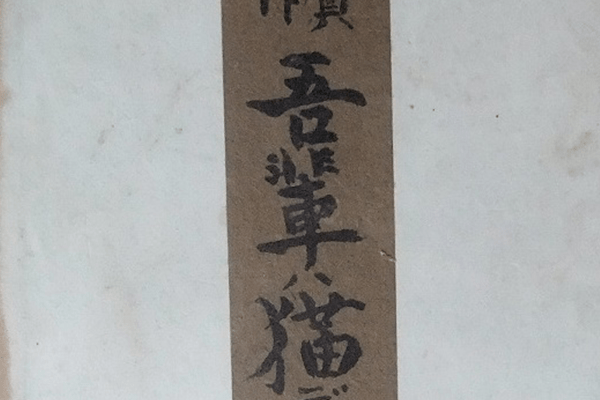 吾輩ハ猫デ